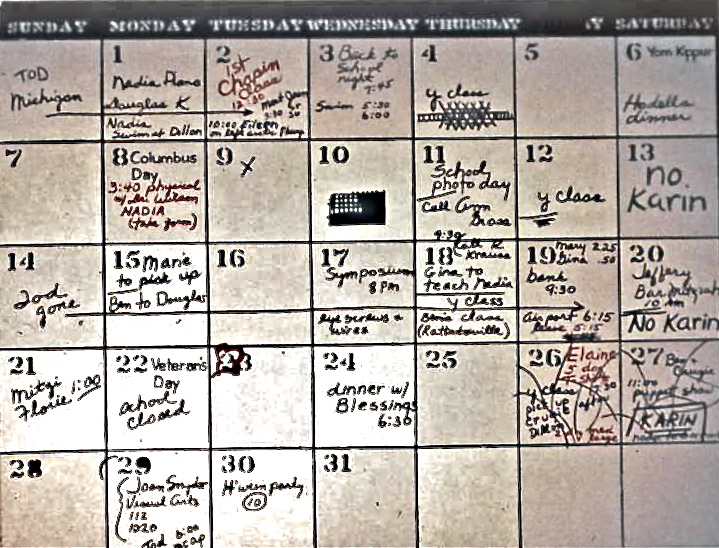 SUNDAY MONDAY TUESDAY WEDNESDAY THURSDAY Y SATURDAY
TOD
Michigan
1
Nadia Piano
Douglas K
Nadia
Swim at Dillon
2
1st
Chapin
Class
12:30
10:00 Eileen
3 Back to
School
night
7:45
Swim 5:30
6:00
4
y class
5
6 Yom Kippur
Hadella
dinner
7
8 Columbus
Day
3:40 physical
w/ Dr. Wilson
NADIA
(take form)
9
X
10
11
School
photo day
Call Ann
Gross
9:30
12
y class
13
no
Karin
14
Tod
gone
15 Marie
to pick up
Ben to Douglas
16
17
Symposium
8 PM
eye screws &
wires
18 Call K
Krauss
Gina to
teach Nadia
y class
Ben's class
19 Mary 2.25
Gina .50
bank
9:30
Airport 6:15
5:15
20
Jeffery
Bar mitzvah
10 am
No Karin
21
Mitzi
Florie 1:00
22 Veteran's
Day
school
closed
23
24
dinner w/
Blessings
6:30
25
26 Elaine
5 doz
T-shirts
y class
pick up
27 Ben +
11:00
puppet show
KARIN
28
29
Joan Snyder
Visual Arts
112
10:20
Tod 8:00
30
H'ween party
10
31